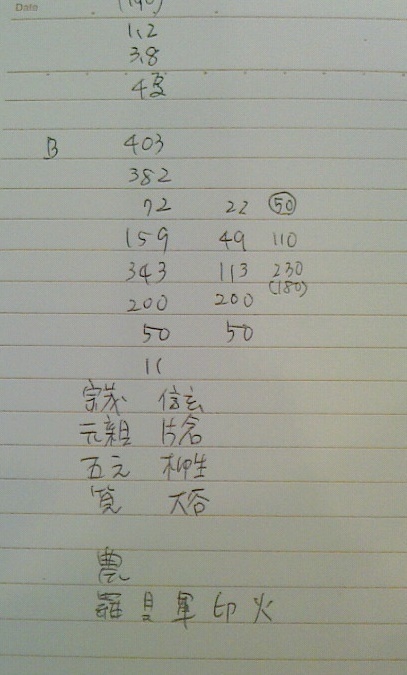 Date
(140)
1.2
3.8
4
B 403
382
72 22 50
159 49 110
343 113 230
(180)
200 200
50 50
11
宗茂 信玄
元親 片倉
五元 柳生
寛 大谷
農
羅 月 軍 印 火